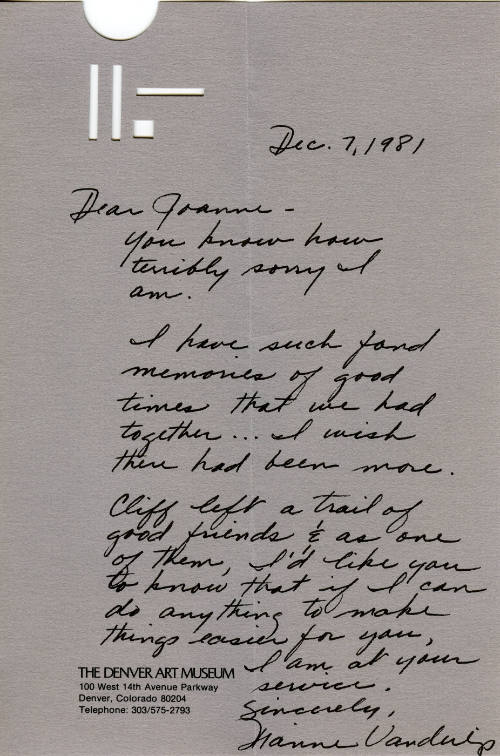 Dec. 7, 1981
Dear Joanne -
You know how
terribly sorry I
am.
I have such fond
memories of good
times that we had
together... I wish
there had been more.
Cliff left a trail of
good friends & as one
of them, I'd like you
to know that if I can
do anything to make
things easier for you,
I am at your
service.
Sincerely,
Dianne Vanderlip
THE DENVER ART MUSEUM
100 West 14th Avenue Parkway
Denver, Colorado 80204
Telephone: 303/575-2793